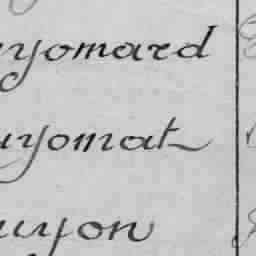 uyomard
uyomat
uyon